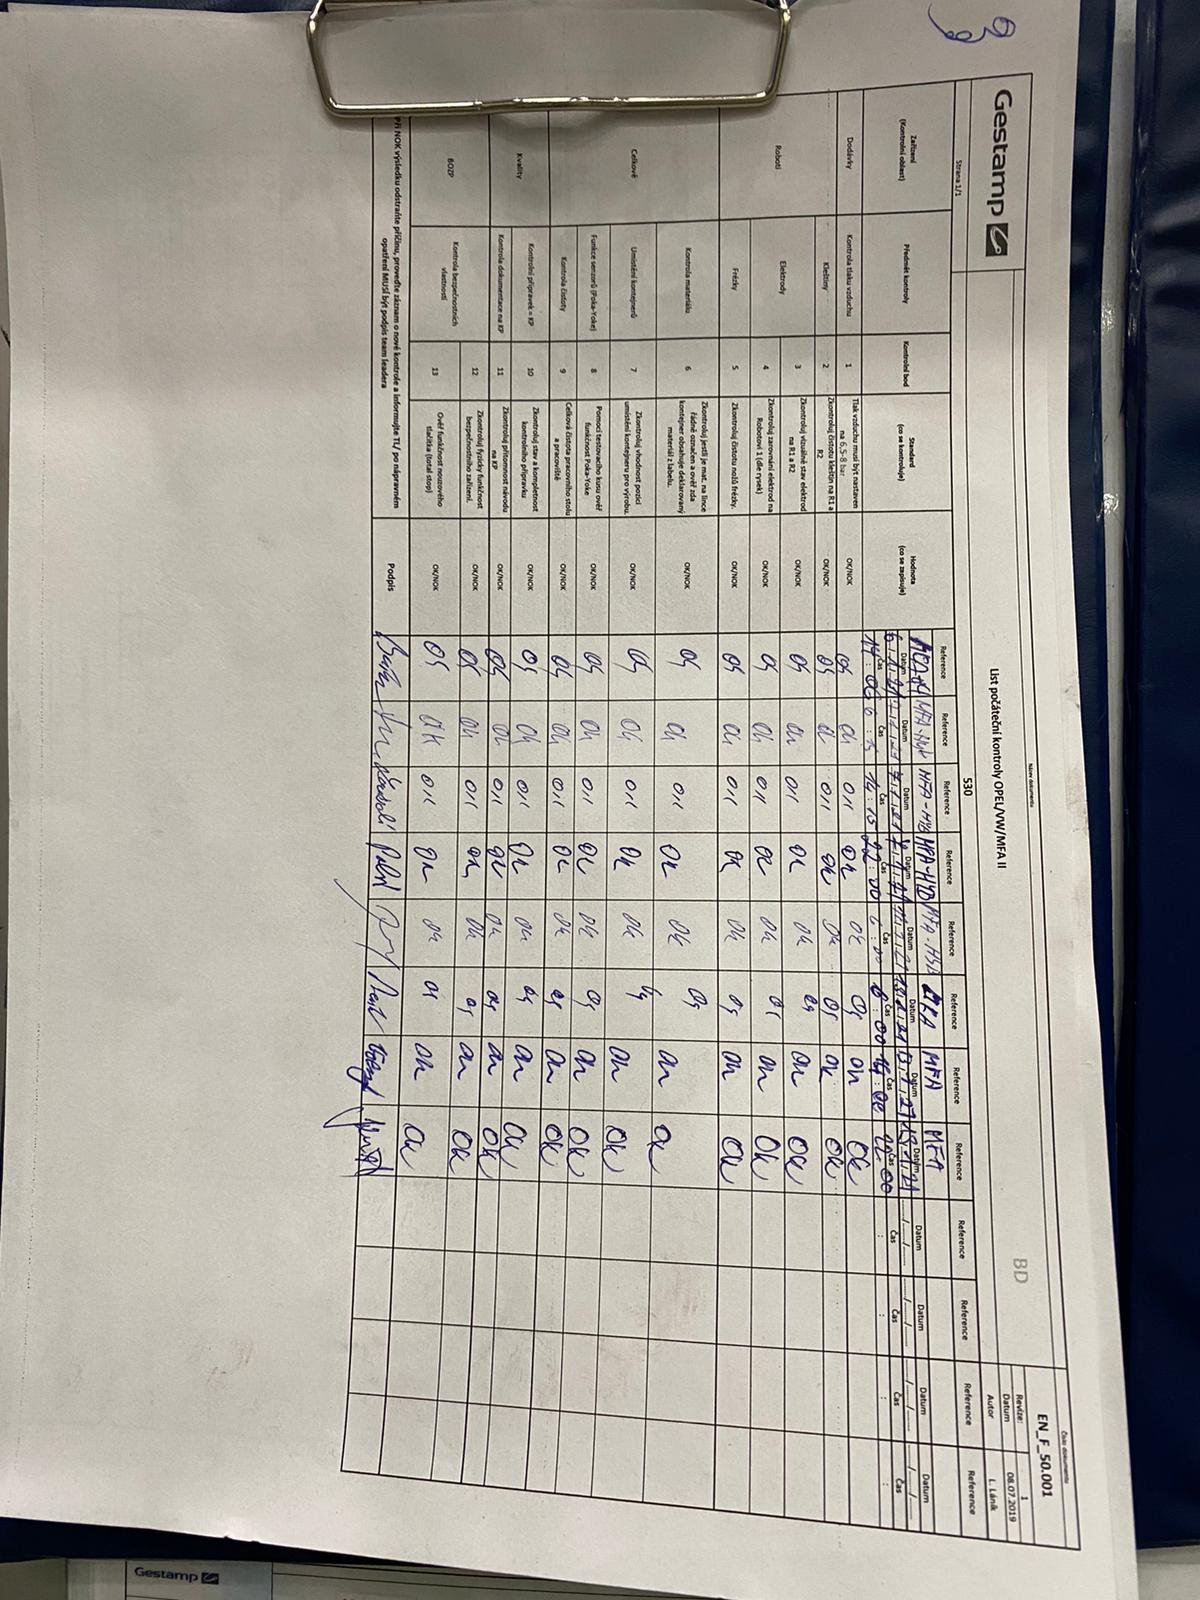 Název dokumentu
Číslo dokumentu
Gestamp
List počáteční kontroly OPEL/VW/MFA II
BD
EN_F_50.001
Revize: 1
Datum 08.07.2019
Autor L. Láník
Strana 1/1
530
Zařízení (Kontrolní oblast)
Předmět kontroly
Kontrolní bod
Standard (co se kontroluje)
Hodnota (co se zapisuje)
Reference Reference Reference Reference Reference Reference Reference Reference Reference Reference Reference Reference
MFA-HYB MFA-HYB MFA MFA MFA
Datum Datum Datum Datum Datum Datum Datum Datum Datum Datum Datum Datum
6.1.21 7.1.21 7.1.21 13.1.21 13.1.21
Čas Čas Čas Čas Čas Čas Čas Čas Čas Čas Čas Čas
6:15 14:15 22:00 6:00 6:00 22:00
Dodávky Kontrola tlaku vzduchu 1 Tlak vzduchu musí být nastaven na 6,5-8 bar OK/NOK OK OK OK OK OK OK OK OK
Roboti Kleštiny 2 Zkontroluj čistotu kleštin na R1 a R2 OK/NOK OK OK OK OK OK OK OK
Elektrody 3 Zkontroluj vizuálně stav elektrod na R1 a R2 OK/NOK OK OK OK OK OK OK OK OK
4 Zkontroluj zarovnání elektrod na Robotovi 1 (dle rysek) OK/NOK OK OK OK OK OK OK OK OK
Frézky 5 Zkontroluj čistotu nožů frézky. OK/NOK OK OK OK OK OK OK OK OK
Celkově Kontrola materiálu 6 Zkontroluj jestli je mat. na lince řádně označen a ověř zda kontejner obsahuje deklarovaný materiál z labelu. OK/NOK OK OK OK OK OK OK OK OK
Umístění kontejnerů 7 Zkontroluj vhodnost pozici umístění kontejneru pro výrobu. OK/NOK OK OK OK OK OK OK OK OK
Funkce senzorů (Poka-Yoke) 8 Pomocí testovacího kusu ověř funkčnost Poka-Yoke OK/NOK OK OK OK OK OK OK OK OK
Kontrola čistoty 9 Celková čistota pracovního stolu a pracoviště OK/NOK OK OK OK OK OK OK OK OK
Kvality Kontrolní přípravek = KP 10 Zkontroluj stav a kompletnost kontrolního přípravku OK/NOK OK OK OK OK OK OK OK OK
Kontrola dokumentace na KP 11 Zkontroluj přítomnost návodu na KP OK/NOK OK OK OK OK OK OK OK OK
BOZP Kontrola bezpečnostních vlastností 12 Zkontroluj fyzicky funkčnost bezpečnostního zařízení. OK/NOK OK OK OK OK OK OK OK OK
13 Ověř funkčnost nouzového tlačítka (total stop) OK/NOK OK OK OK OK OK OK OK OK
Při NOK výsledku odstraňte příčinu, proveďte záznam o nové kontrole a informujte TL/ po nápravném opatření MUSÍ být podpis team leadera
Podpis
Gestamp